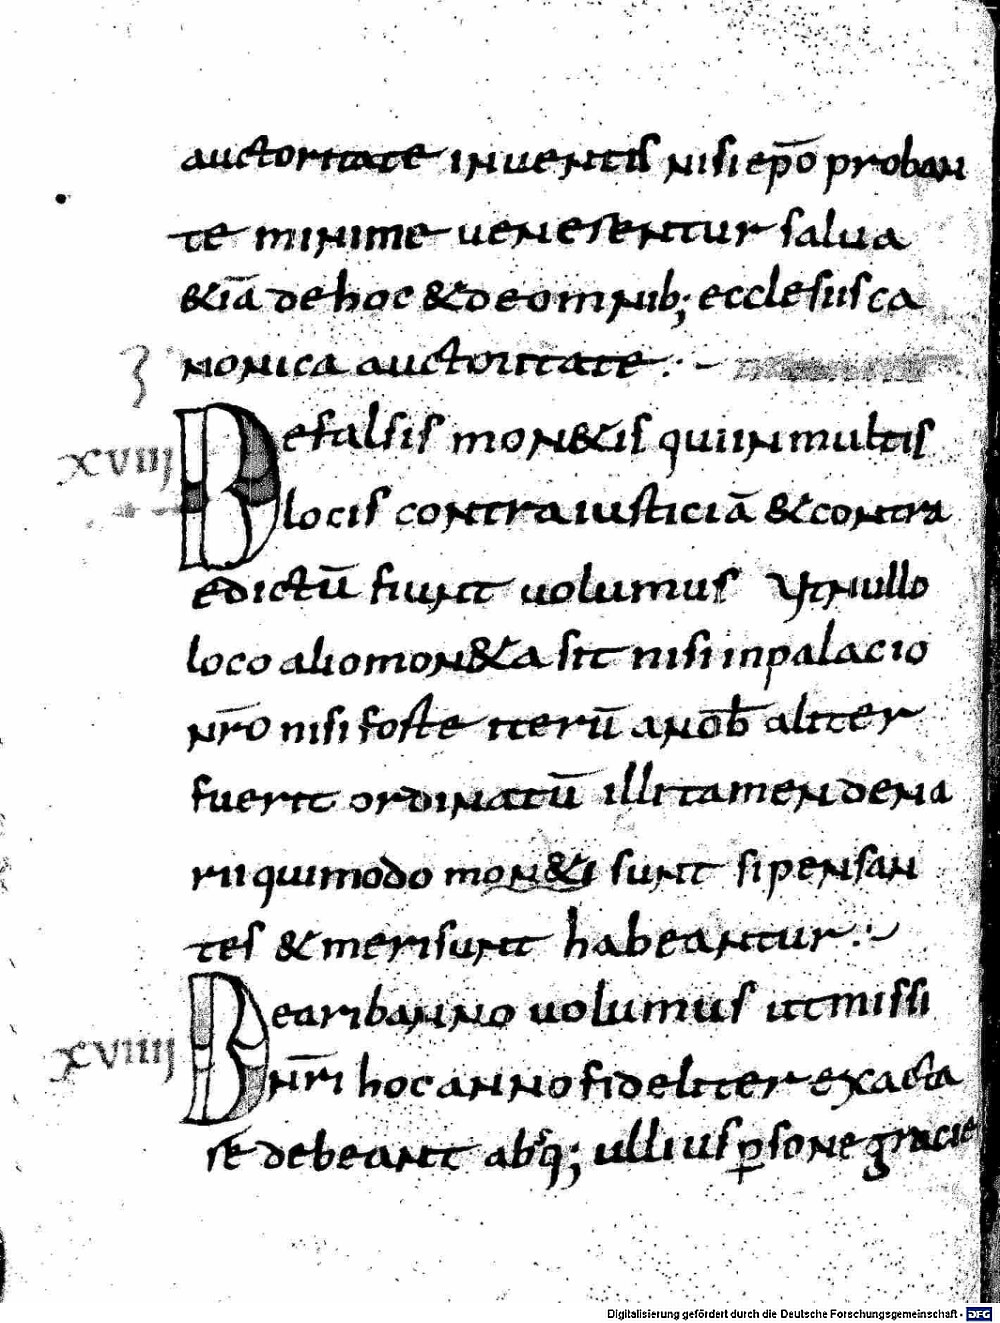 auctoritate inuentis nisi ep̄o proban
te minime uenerentur salua
&iā de hoc & de omnib; ecclesiis ca
nonica auctoritate :-
xviii De falsis mon&is qui in multis
locis contra iusticiā & contra
edictū fiunt uolumus Ut nullo
loco alio mon&a sit nisi in palacio
nr̄o nisi forte iterū a nob̄ aliter
fuerit ordinatū illi tamen dena
rii qui modo mon&i sunt si pensan
tes & meri sunt habeantur :-
xviiii De aribanno uolumus ut missi
nr̄i hoc anno fideliter exacta
re debeant absq; ullius p̱sone gracie
Digitalisierung gefördert durch die Deutsche Forschungsgemeinschaft - DFG